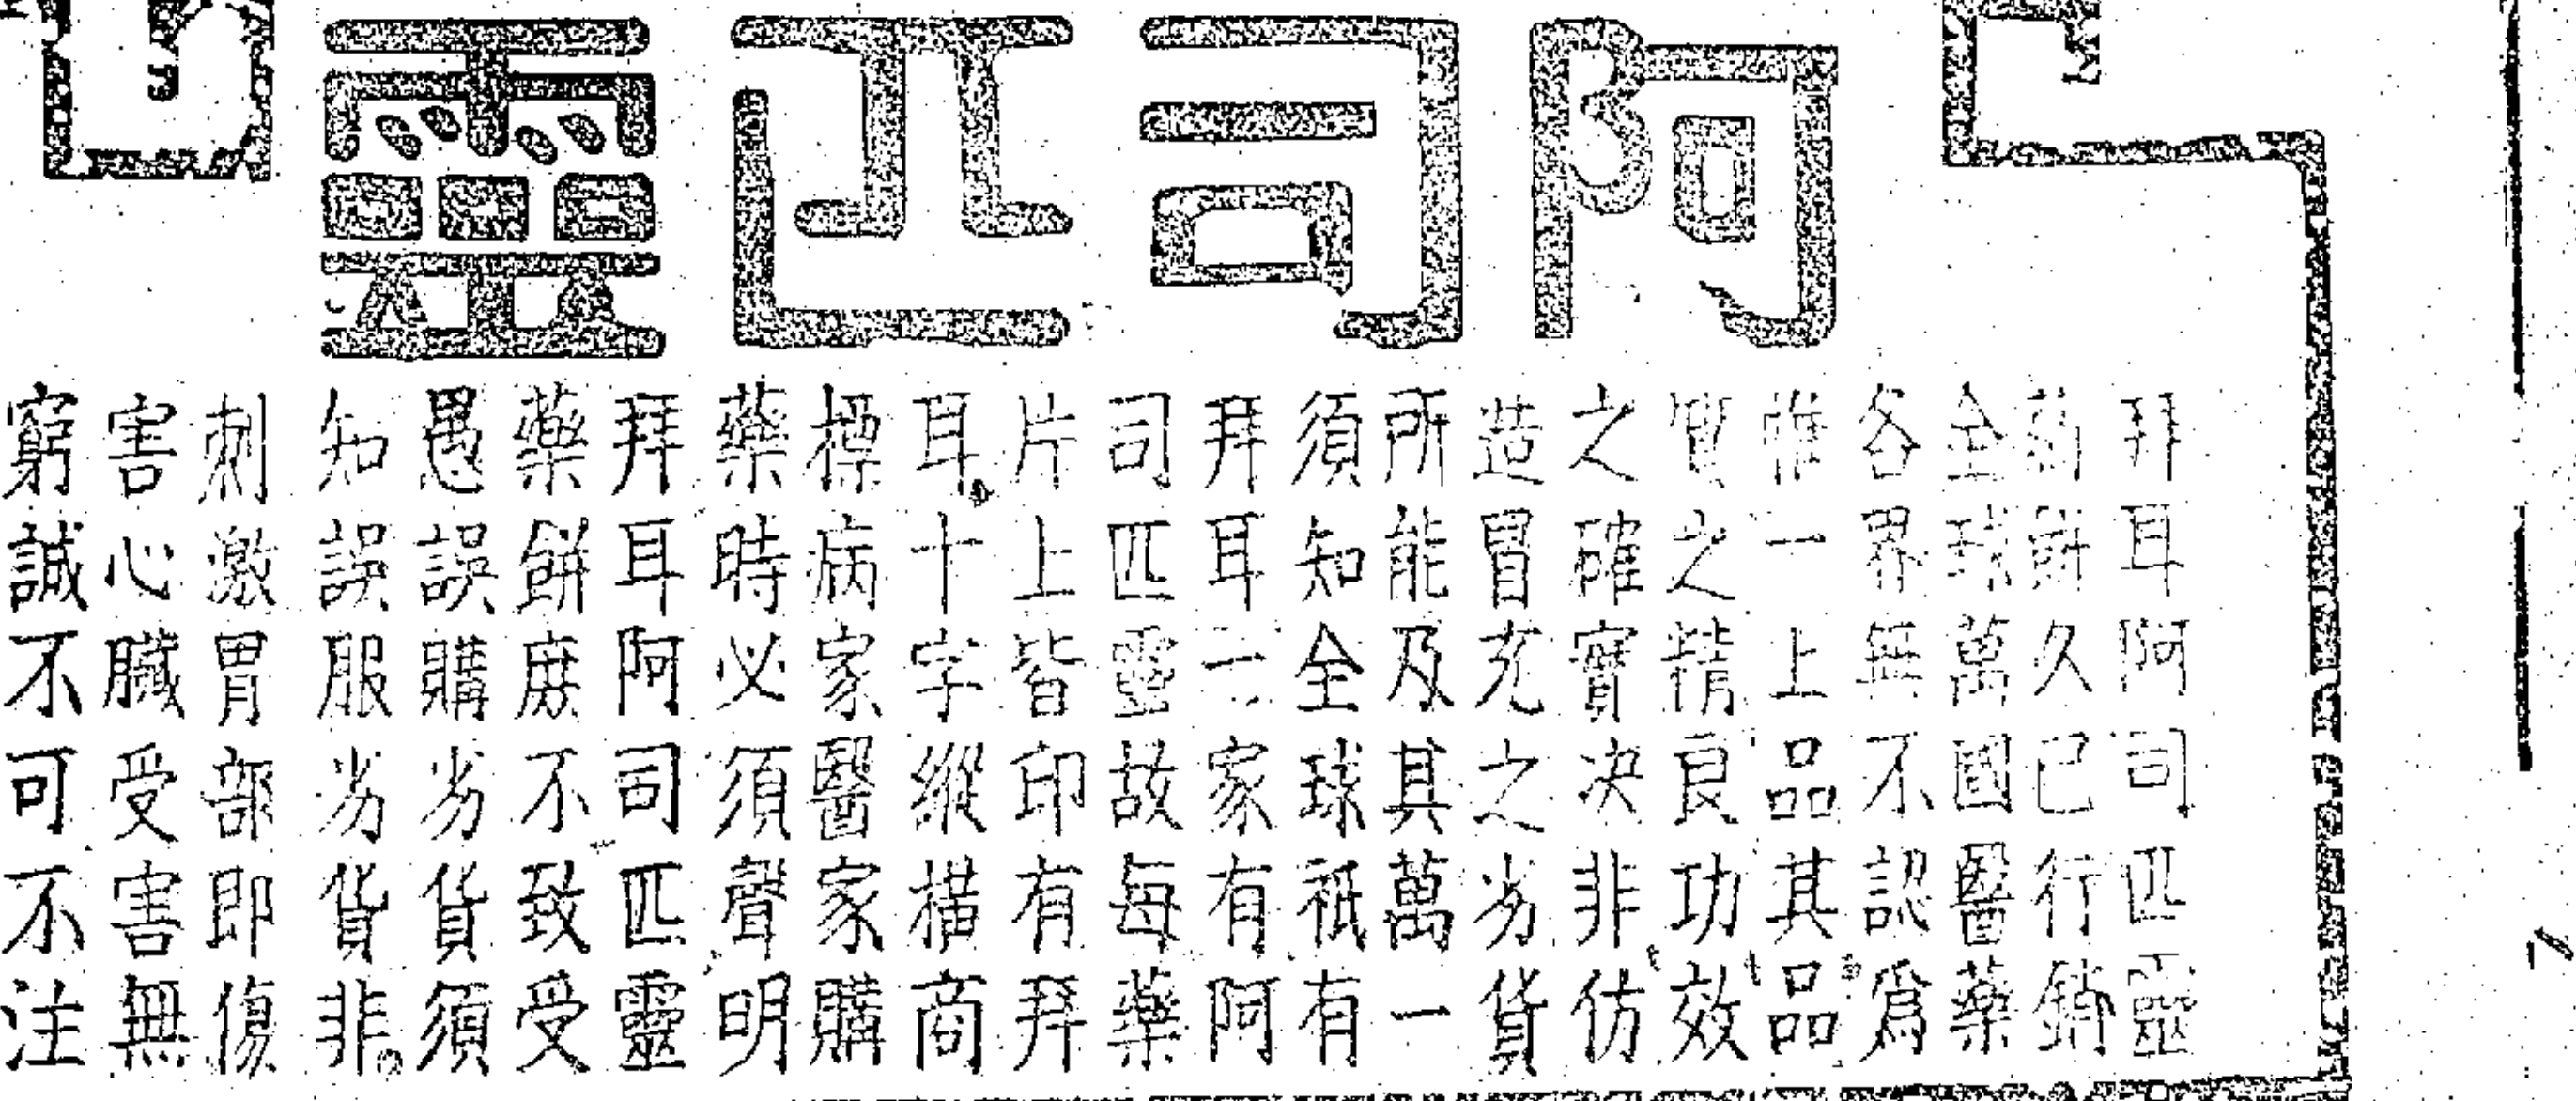 阿司匹靈
拜耳阿司匹靈
藥餅久已行銷
全球萬國醫藥
各界無不認爲
惟一上品其品
質之精良功效
之確實決非仿
造冒充之劣貨
所能及其萬一
須知全球祗有
拜耳一家有阿
司匹靈故每藥
片上皆印有拜
耳十字縱横商
標病家醫家購
藥時必須聲明
拜耳阿司匹靈
藥餅庶不致受
愚誤購劣貨須
知誤服劣貨非
刺激胃部即傷
害心臟受害無
窮誠不可不注